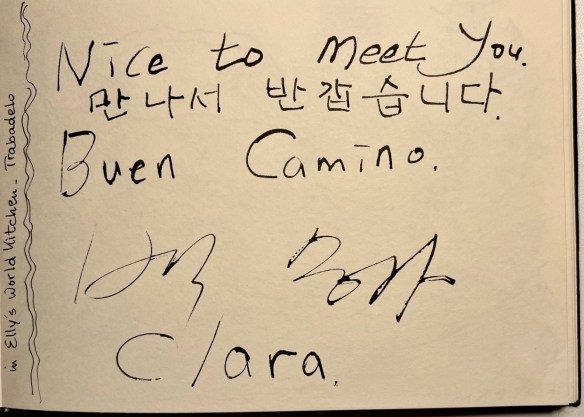 Nice to meet You.
만나서 반갑습니다.
Buen Camino.
Clara.
in Elly's World Kitchen - Trabadelo